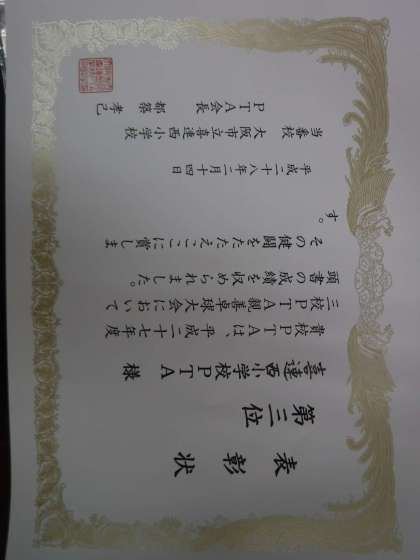 表彰状
第三位
喜連西小学校PTA 様
貴校PTAは、平成二十七年度
三校PTA親善卓球大会において
頭書の成績を収められました。
その健闘をたたえここに賞しま
す。
平成二十八年二月十四日
当番校 大阪市立喜連西小学校
PTA会長 都築 孝己